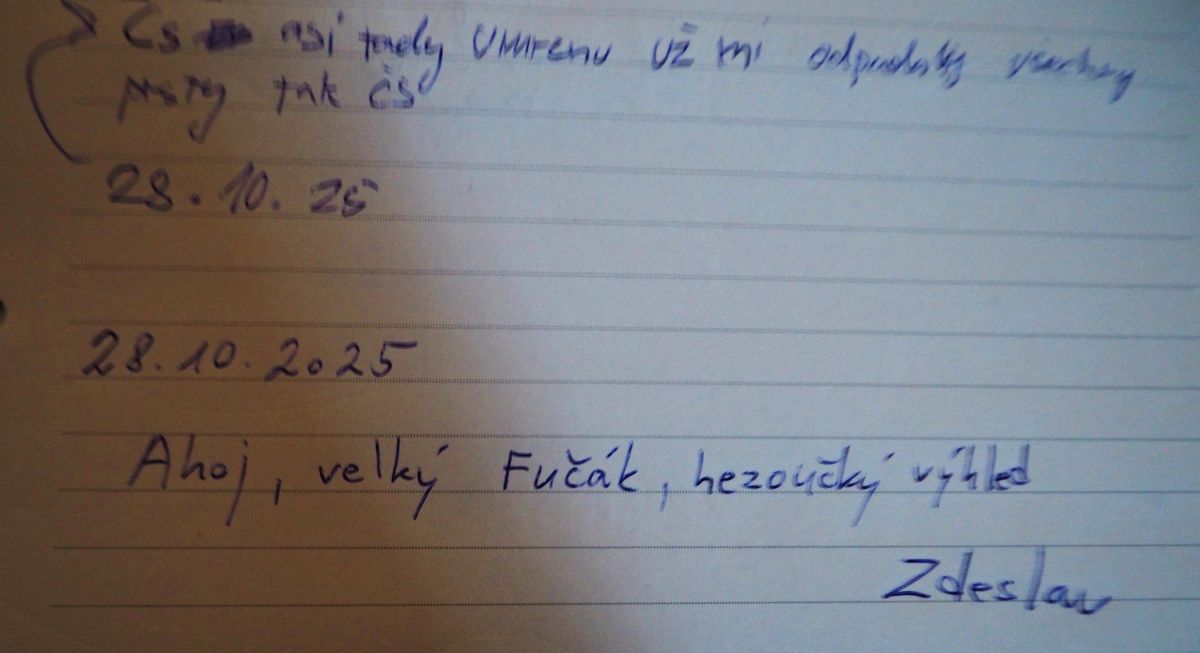 Čs asi tady umřenu už mi odpadaly všechny
prsty tak čs
28. 10. 25
28.10.2025
Ahoj, velký Fučák, hezoučký výhled
Zdeslav